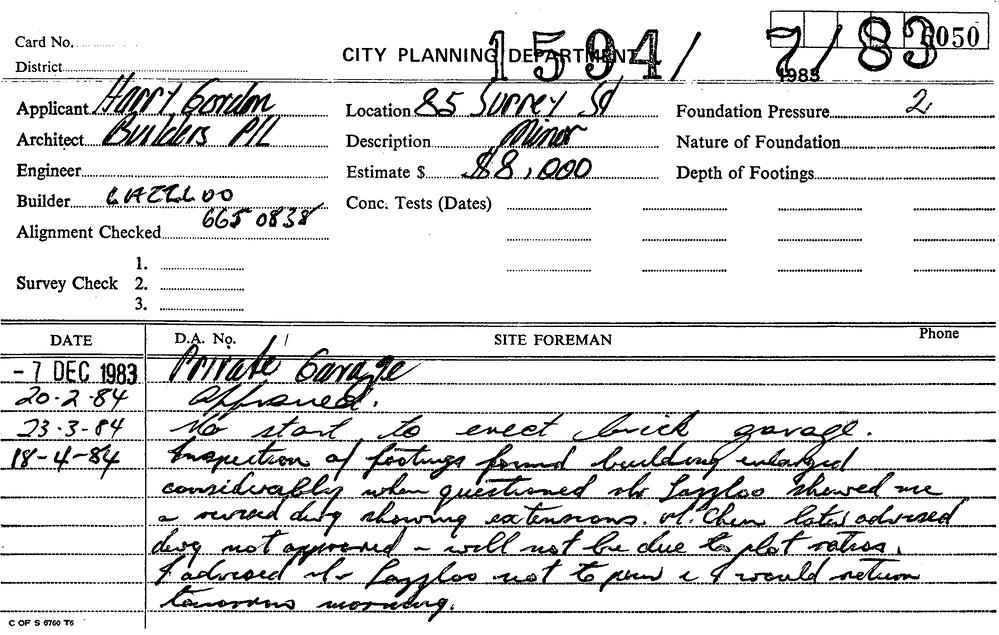 Card No.
District
CITY PLANNING DEPARTMENT
1594/7/83
6050
1983
Applicant Harry Gordon
Architect Builders P/L
Engineer
Builder
665 0838
Alignment Checked
Survey Check 1.
2.
3.
Location 85 Surrey St
Description Minor
Estimate $ $8,000
Conc. Tests (Dates)
Foundation Pressure 2
Nature of Foundation
Depth of Footings
DATE D.A. No. / SITE FOREMAN Phone
- 7 DEC 1983 Private Garage
20-2-84 Approved.
23-3-84 No start to erect brick garage.
18-4-84 Inspection of footings found building enlarged
considerably when questioned Mr Lazzloo showed me
a revised dwg showing extensions. M. Chen later advised
dwg not approved - will not be due to plot ratios.
I advised Mr Lazzloo not to pour & I would return
tomorrow morning.
C OF S 6760 T6